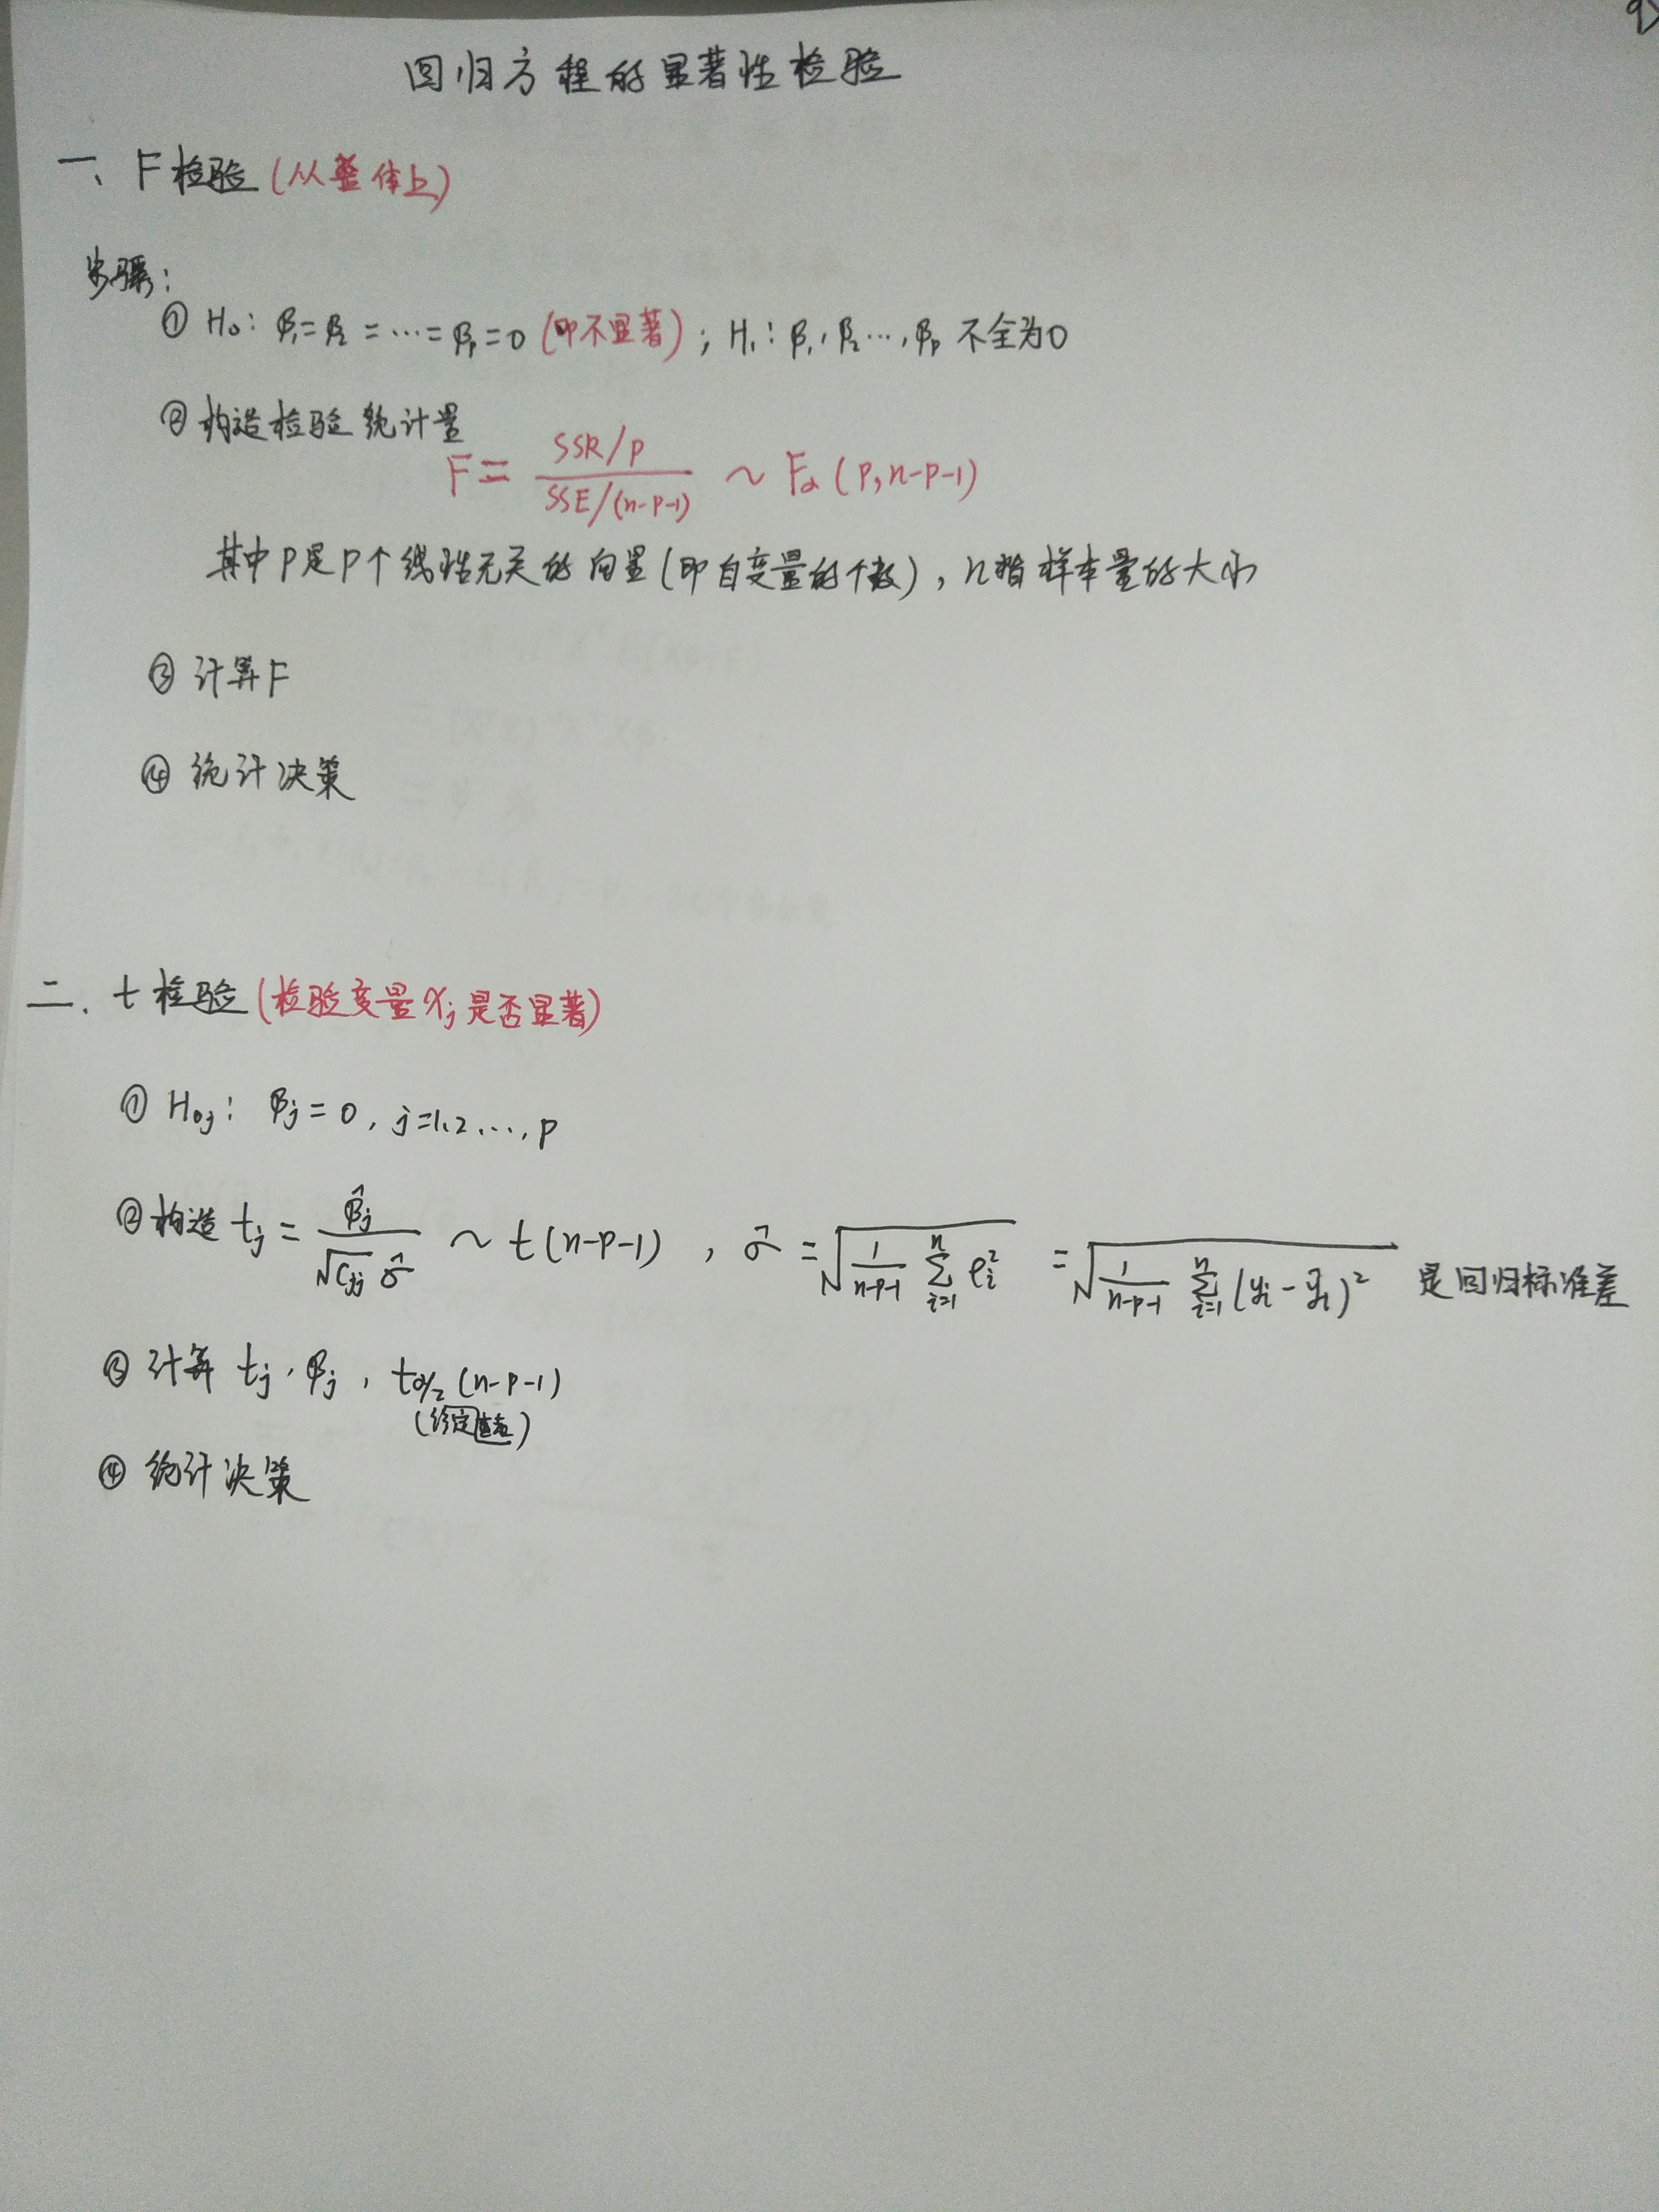 回归方程的显著性检验
一、F检验(从整体上)
步骤:
① H₀: β₁=β₂=…=βₚ=0 (即不显著); H₁: β₁,β₂…,βₚ 不全为0
② 构造检验统计量
F = (SSR/p) / (SSE/(n-p-1)) ~ Fα (p, n-p-1)
其中p是p个线性无关的向量(即自变量的个数), n指样本量的大小
③ 计算F
④ 统计决策
二. t检验(检验变量xⱼ是否显著)
① H₀ⱼ: βⱼ=0, j=1,2…,p
② 构造 tⱼ = β̂ⱼ / (√cⱼⱼ σ̂) ~ t(n-p-1), σ̂ = √(1/(n-p-1) Σᵢ₌₁ⁿ eᵢ²) = √(1/(n-p-1) Σᵢ₌₁ⁿ (yᵢ-ŷᵢ)²) 是回归标准差
③ 计算 tⱼ, βⱼ, t_{α/2}(n-p-1)
④ 统计决策